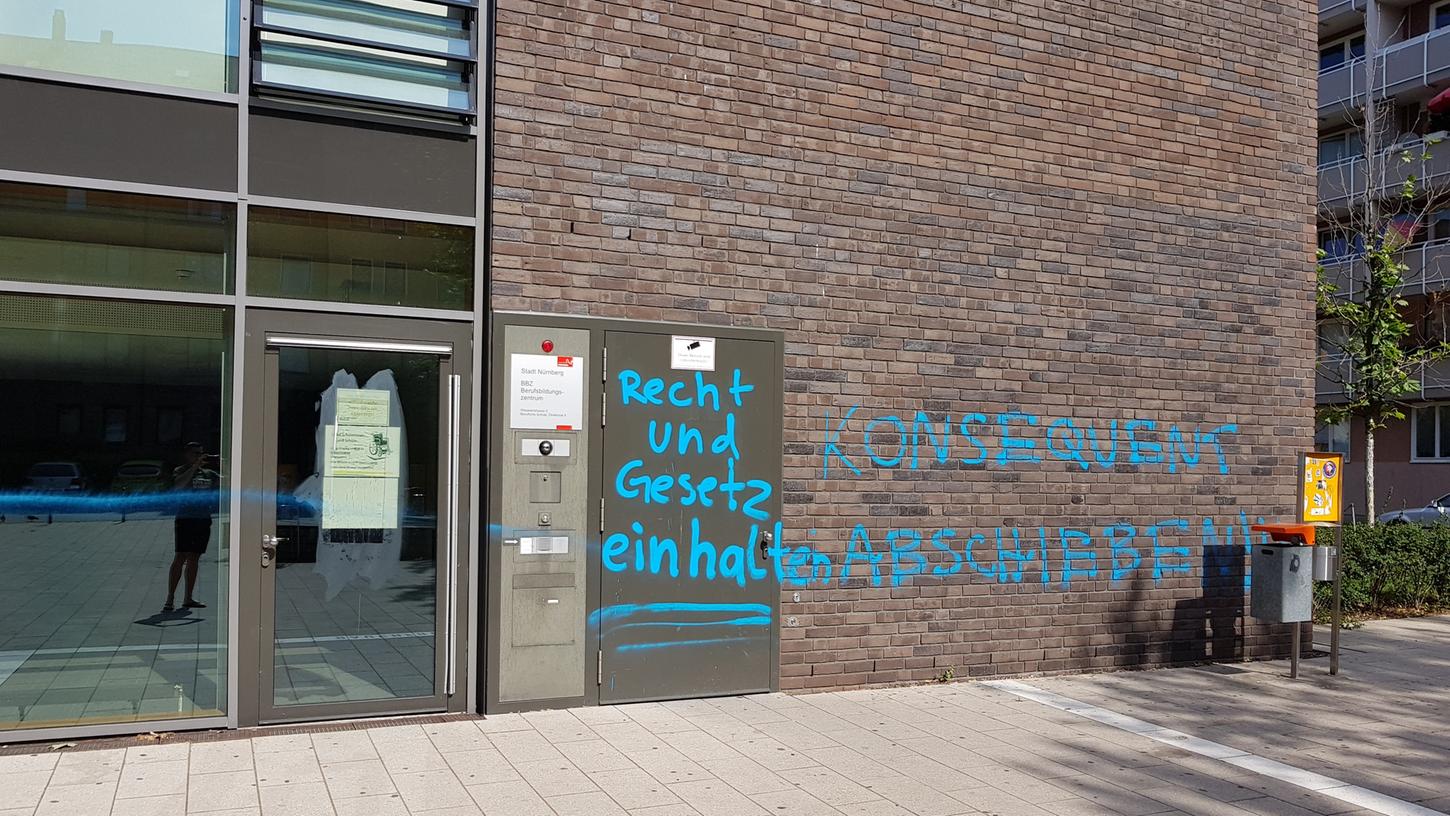 Stadt Nürnberg
BBZ
Berufsbildungs-
zentrum
Recht
und
Gesetz
einhalten
KONSEQUENT
ABSCHIEBEN!